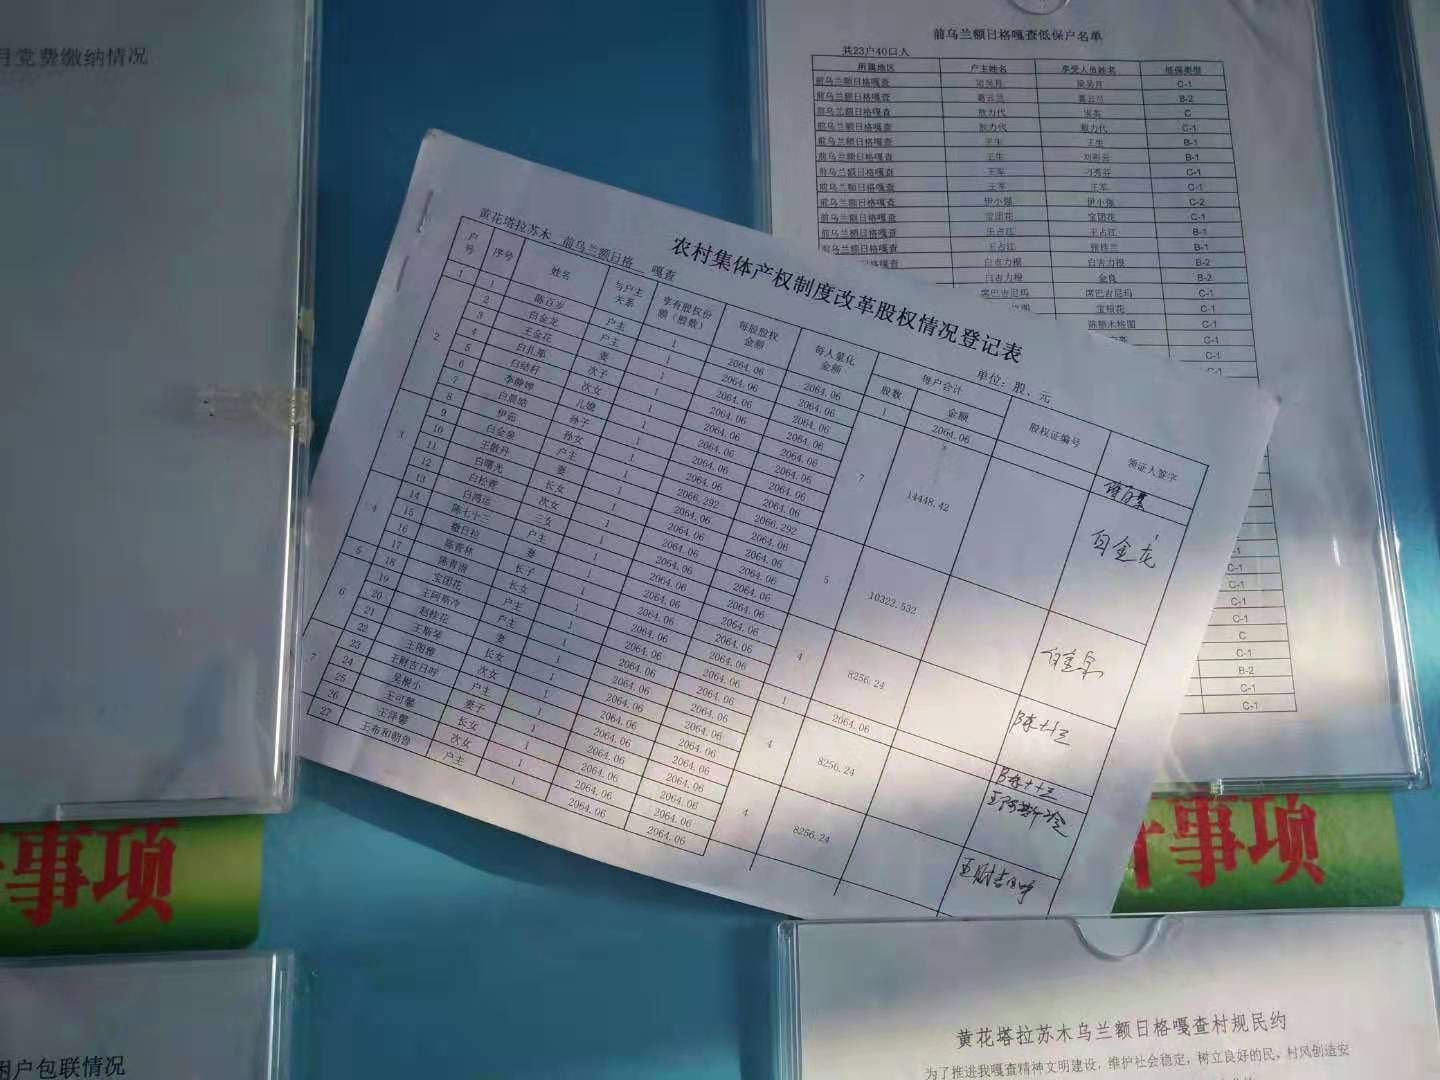 月党费缴纳情况
前乌兰额日格嘎查低保户名单
共23户40口人
所属地区 户主姓名 享受人员姓名 低保类型
前乌兰额日格嘎查 C-1
前乌兰额日格嘎查 葛云兰 葛云兰 B-2
前乌兰额日格嘎查 敖力代 C
前乌兰额日格嘎查 敖力代 敖力代 C-1
前乌兰额日格嘎查 王生 王生 B-1
前乌兰额日格嘎查 王生 B-1
前乌兰额日格嘎查 王军 C-1
前乌兰额日格嘎查 王军 王军 C-1
前乌兰额日格嘎查 伊小强 伊小强 C-2
前乌兰额日格嘎查 宝团花 宝团花 C-1
前乌兰额日格嘎查 王占江 王占江 B-1
前乌兰额日格嘎查 王占江 张桂兰 B-1
白吉力根 白吉力根 B-2
白吉力根 金良 B-2
席巴吉尼玛 席巴吉尼玛 C-1
宝根花 C-1
陈额木格图 C-1
C-1
C-1
C-1
C-1
C-1
C
C-1
B-2
C-1
C-1
农村集体产权制度改革股权情况登记表
黄花塔拉苏木 前乌兰额日格 嘎查
单位：股、元
户号 序号 姓名 与户主关系 享有股权份额（股数） 每股股权金额 每人量化金额 每户合计 股权证编号 领证人签字
股数 金额
1 1 陈百岁 户主 1 2064.06 2064.06 1 2064.06
2 2 白金龙 户主 1 2064.06 2064.06 7 14448.42 白金龙
3 王金花 妻 1 2064.06 2064.06
4 白扎那 次子 1 2064.06 2064.06
5 白结籽 次女 1 2064.06 2064.06
6 李静婵 儿媳 1 2064.06 2064.06
7 白晨皓 孙子 1 2064.06 2064.06
8 伊茹 孙女 1 2064.06 2064.06
3 9 白金泉 户主 1 2066.292 2066.292 5 10322.532 白金泉
10 王胜丹 妻 1 2064.06 2064.06
11 白曙光 长女 1 2064.06 2064.06
12 白松青 次女 1 2064.06 2064.06
13 白鸿运 三女 1 2064.06 2064.06
4 14 陈七十三 户主 1 2064.06 2064.06 4 8256.24 陈七十三
15 敖日拉 妻 1 2064.06 2064.06
16 陈青林 长子 1 2064.06 2064.06
17 陈青雨 长女 1 2064.06 2064.06
5 18 宝团花 户主 1 2064.06 2064.06 1 2064.06 陈七十三
6 19 王阿斯冷 户主 1 2064.06 2064.06 4 8256.24 王阿斯冷
20 赵桂花 妻 1 2064.06 2064.06
21 王斯琴 长女 1 2064.06 2064.06
22 王雨雅 次女 1 2064.06 2064.06
7 23 王财吉日呼 户主 1 2064.06 2064.06 4 8256.24 王财吉日呼
24 吴根小 妻子 1 2064.06 2064.06
25 王可馨 长女 1 2064.06 2064.06
26 王泽馨 次女 1 2064.06 2064.06
27 王布和朝鲁 户主 1 2064.06 2064.06
事项
事项
困户包联情况
黄花塔拉苏木乌兰额日格嘎查村规民约
为了推进我嘎查精神文明建设，维护社会稳定，树立良好的民，村风创造安